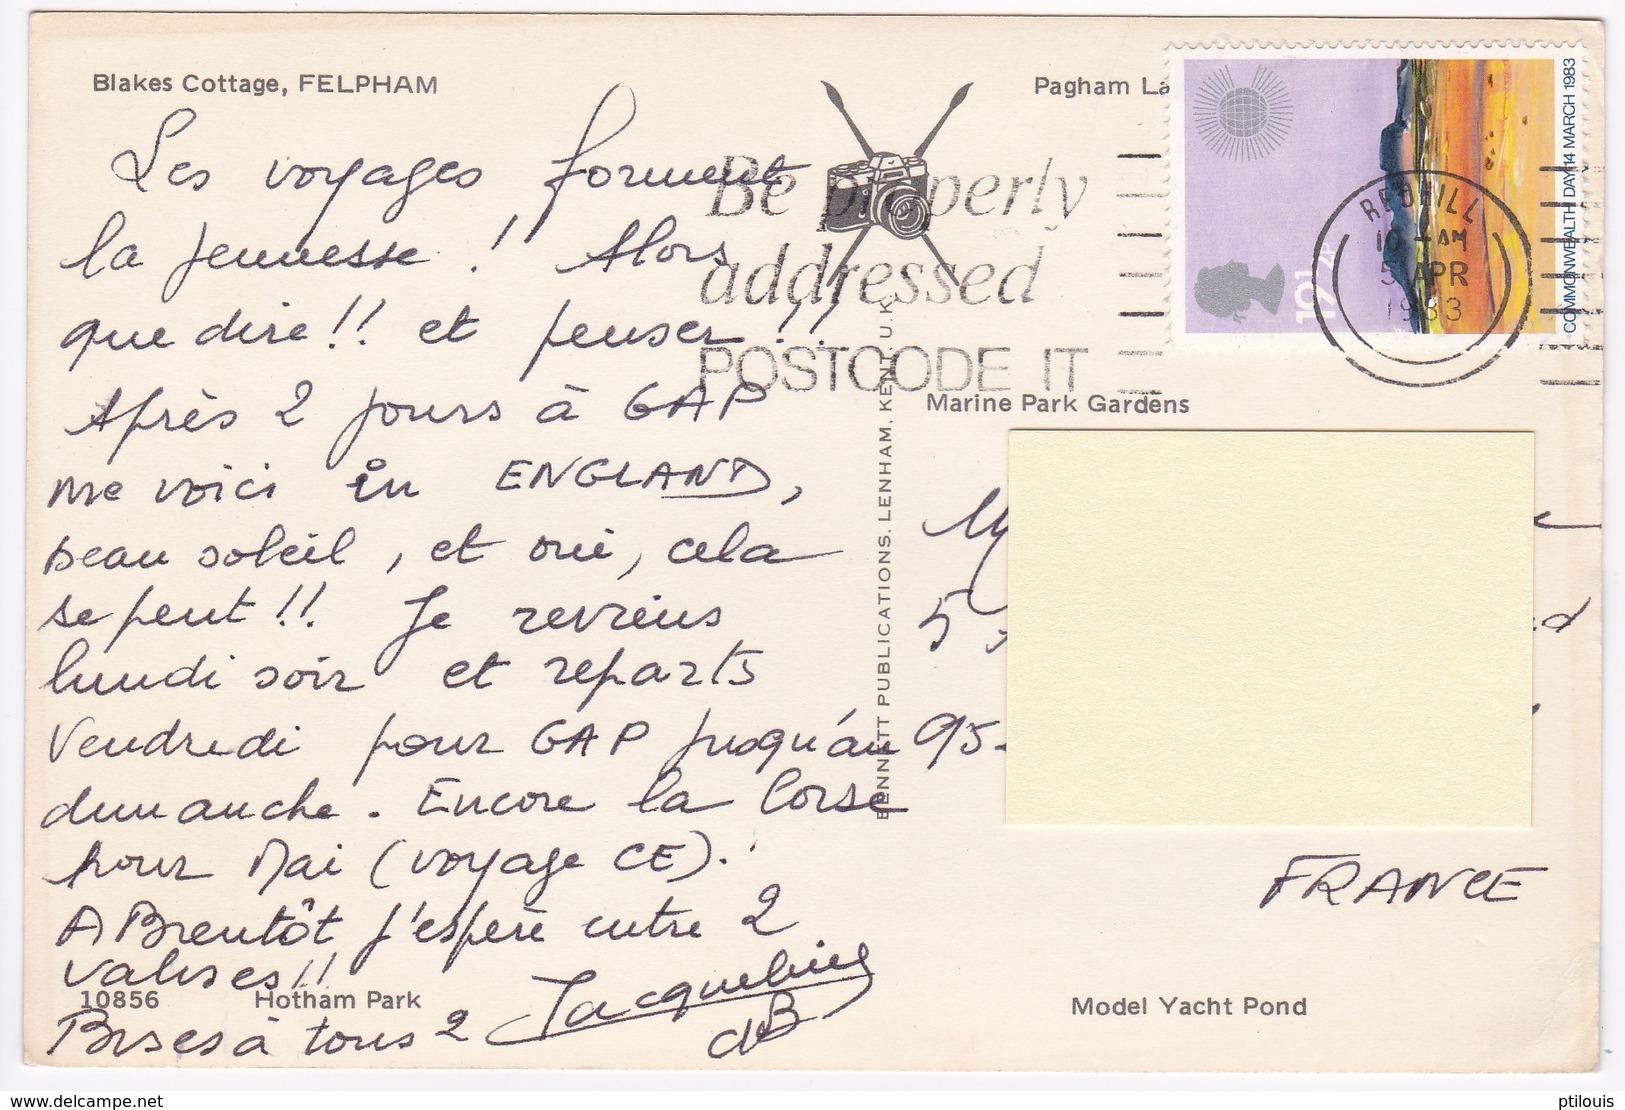 Blakes Cottage, FELPHAM
Pagham La
Les voyages forment
la jeunesse ! Alors
que dire!! et penser!!!
Après 2 jours à GAP
me voici in ENGLAND,
beau soleil, et oui, cela
se peut!! Je reviens
lundi soir et reparts
Vendredi pour GAP jusqu'au
dimanche. Encore la Corse
pour Mai (voyage CE).
A Bientôt j'espère entre 2
valises!!
Bises à tous 2
Jacqueline
10856
Hotham Park
Be properly
addressed
POSTCODE IT
BENNETT PUBLICATIONS. LENHAM. KENT. U.K.
COMMONWEALTH DAY 14 MARCH 1983
19½
REDHILL
10 - AM
5 APR
1983
Marine Park Gardens
5
95
FRANCE
Model Yacht Pond
www.delcampe.net
ptilouis